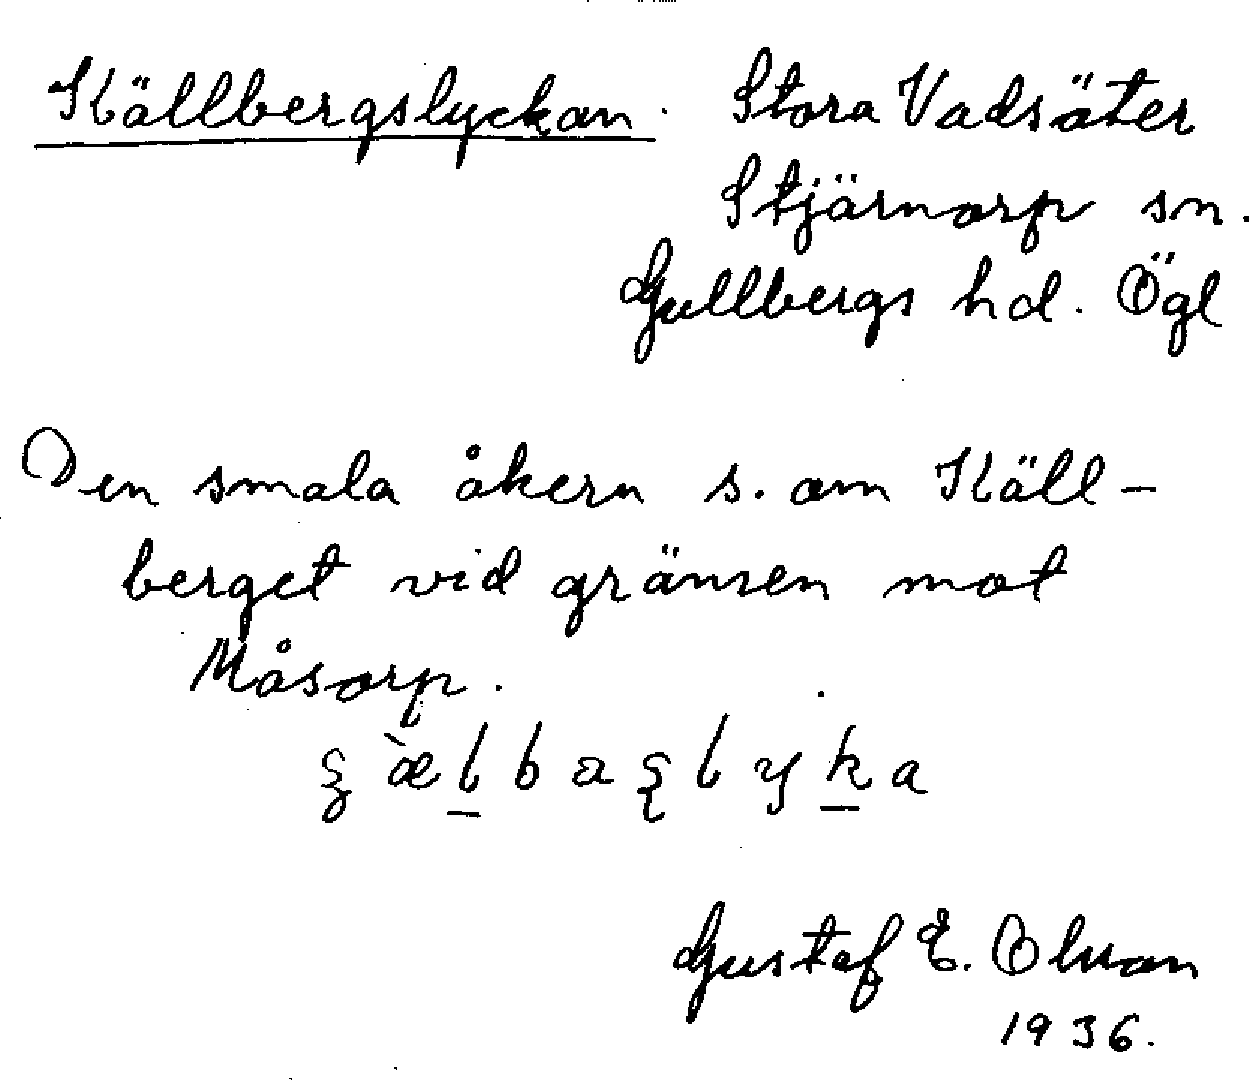 Källbergslyckan. Stora Vadsäter
Stjärnorp sn.
Gullbergs hd. Ögl
Den smala åkern s. om Käll-
berget vid gränsen mot
Måsorp.
Gustaf E. Olsson
1936.